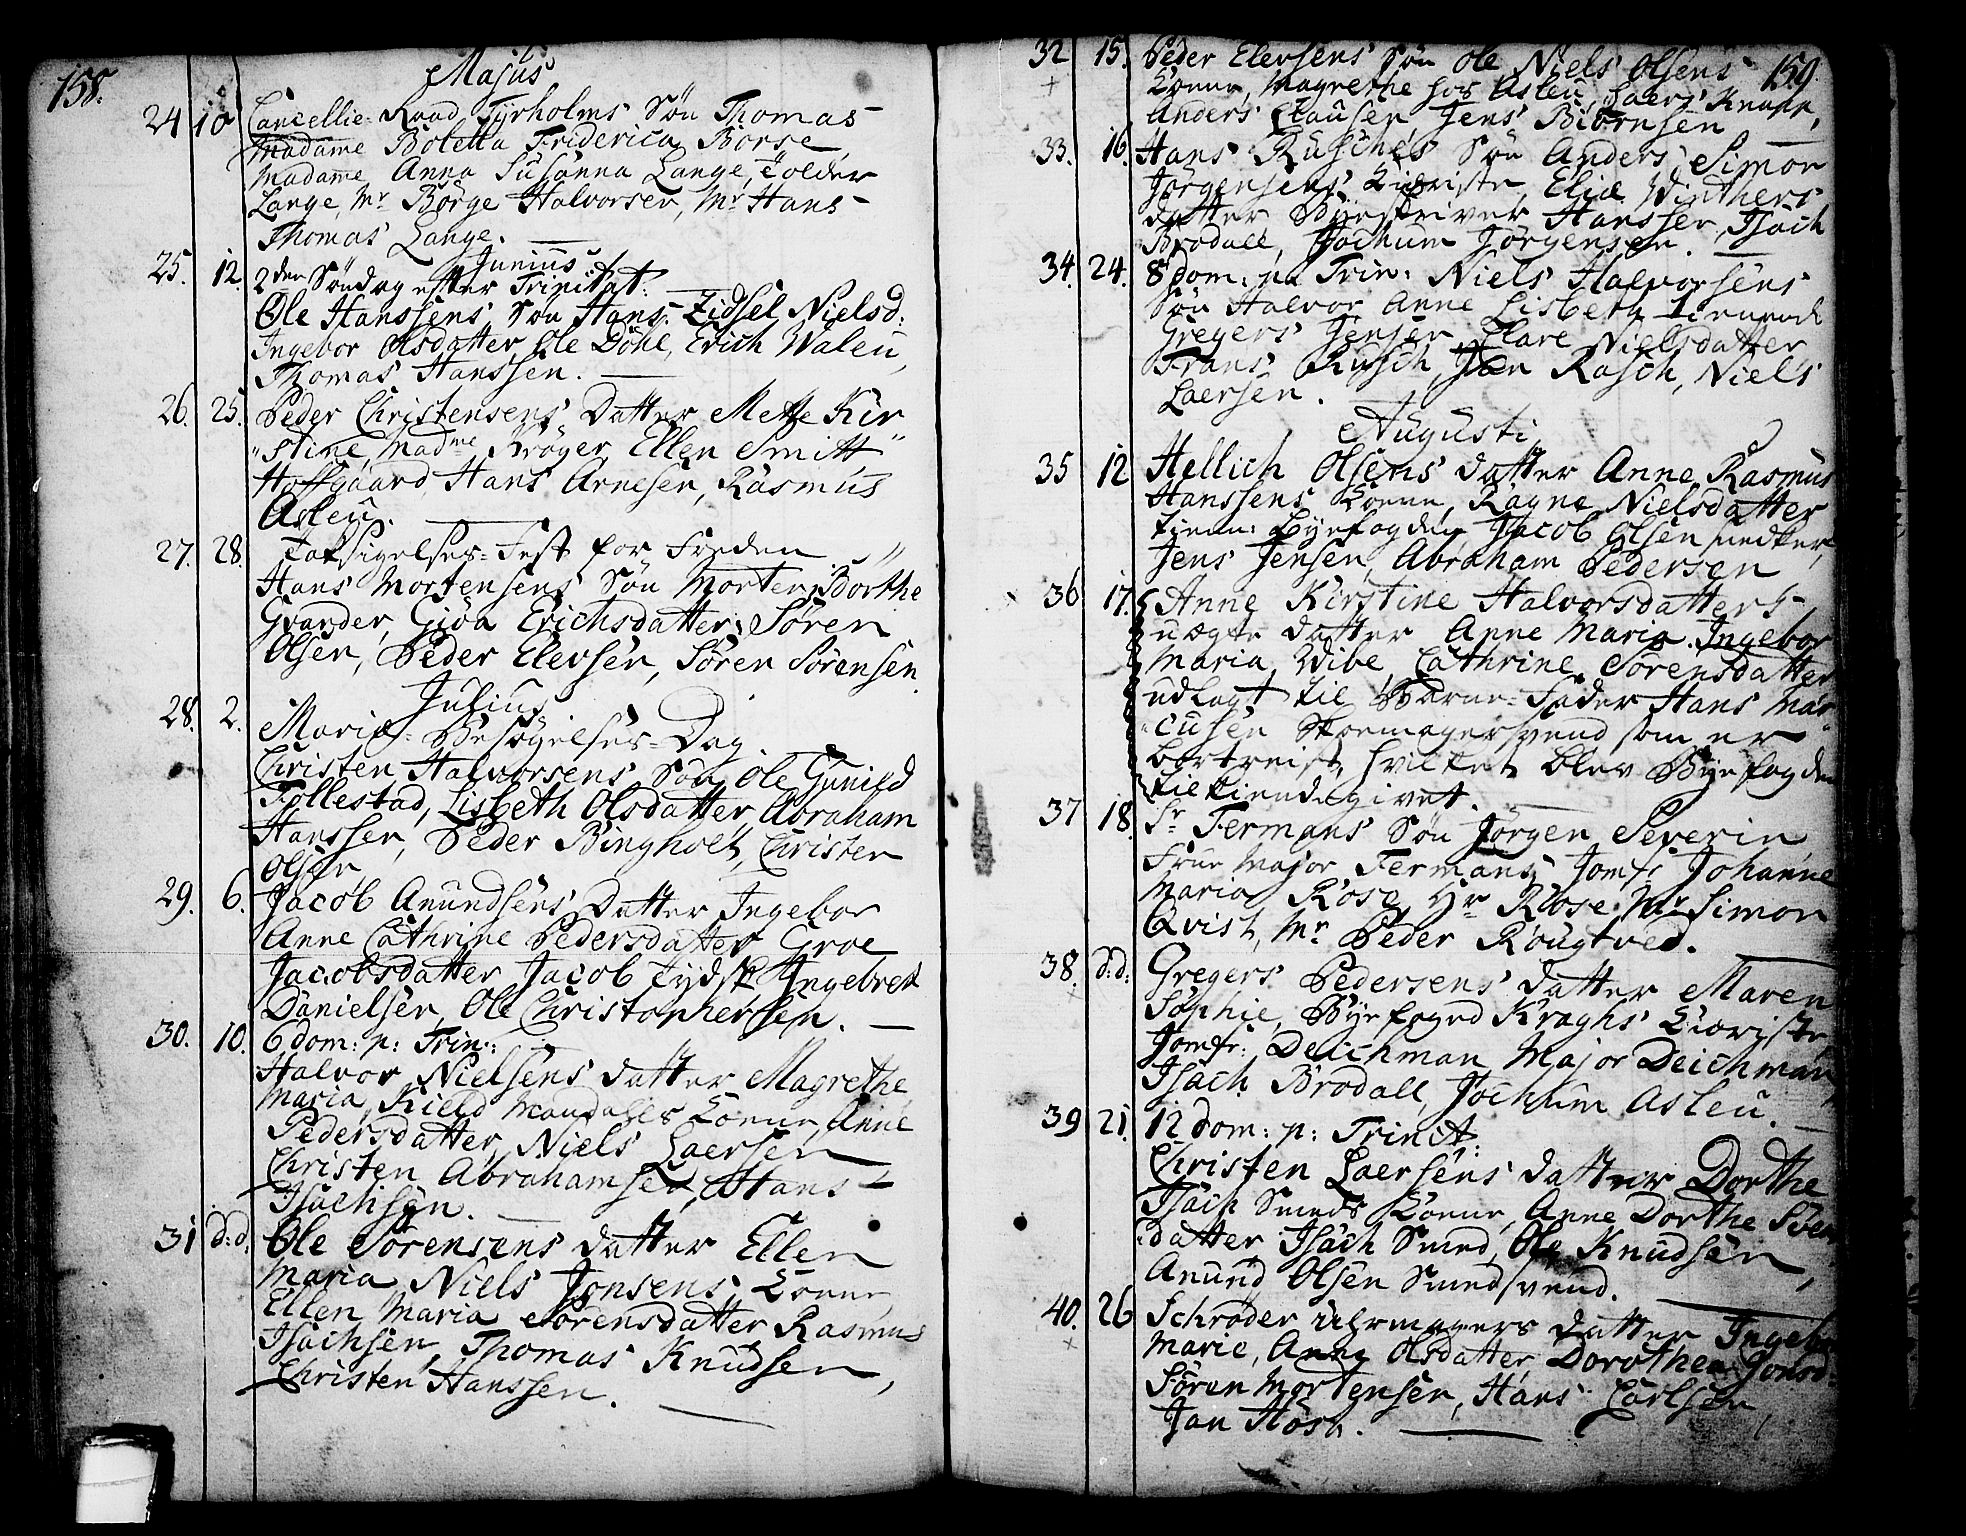 158.
Majus
24 10 Cancellie-Raad Tyrholms Søn Thomas
Madame Boletta Friderica Borse,
Madame Anna Susanna Lange, Tolder
Lange, Mr Börge Halvorsen, Mr Hans
Thomas Lange.
Junius
25. 12. 2den Søndag efter Trinitat:
Ole Hanssens Søn Hans. Zidsel Nielsd:
Ingebor Olsdatter, Ole Döhl, Erich Waleu,
Thomas Hanssen.
26. 25. Peder Christensens Datter Mette Kir
stine, Madme Kröger, Ellen Smitt
Hoffgaard, Hans Arnesen, Rasmus
Asleu.
27. 28. Taksigelses-Fest for Freden
Hans Mortensens Søn Morten, Dorthe
Grander, Giöa Erichsdatter, Sören
Olsen, Peder Elevsen, Sören Sörensen.
Julius
28. 2. Mariæ-Besøgelses-Dag.
Christen Halvorsens Søn Ole, Gunild
Follestad, Lisbeth Olsdatter, Abraham
Hanssen, Peder Bingholt, Christen
Olsen
29. 6. Jacob Anundsens Datter Ingebor
Anne Cathrine Pedersdatter, Groe
Jacobsdatter, Jacob Tydsk, Ingebret
Danielsen, Ole Christophersen.
30. 10. 6 dom: p: Trin:
Halvor Nielsens datter Magrethe
Maria, Kield Mandals Kone, Anne
Pedersdatter, Niels Laersen
Christen Abrahamsen, Hans
Isachsen.
31 d:d: Ole Sörensens datter Ellen
Maria Niels Jonsens Kone,
Ellen Maria Sörensdatter, Rasmus
Isachsen, Thomas Knudsen,
Christen Hanssen.
159.
32 15. Peder Elevsens Søn Ole Niels Olsens
Kone, Magrethe hos Asleu, Laers Knapp,
Anders Clausen Jens Biörnsen
33. 16. Hans Rusches Søn Anders, Simon
Jörgensens Kiæriste, Eliæ Winthers
datter Byeskriver Hanssen, Isach
Brodall, Jochum Jörgensen.
34. 24. 8 dom: p: Trin: Niels Halvorsens
Søn Halvor Anne Lisbeth tienende
Gregers Jensen, Clare Nielsdatter
Frans Rusch, Jen Rasch, Niels
Laersen.
Augusti
35 12 Hellich Olsens datter Anne, Rasmus
Hanssens Kone, Ragne Nielsdatter
tien: Byefogden, Jacob Olsen snedker,
Jens Jensen, Abraham Pedersen
36 17. Anne Kirstine Halvorsdatters
uægte datter Anne Maria. Ingebor
Maria Wibe Cathrine Sörensdatter
udlagt til Barne-Fader Hans Mar
cusen Skomagersvend som er
bortreist, hvilket blev Byefogden
tilkiendegivet.
37 18. Sr Fermans Søn Jörgen Severin
Frue Major Fermans, Jomfr Johanne
Maria Rose, Hr Rose, Mr Simon
Qvist, Mr Peder Rougtved.
38. d:d: Gregers Pedersens datter Maren
Sophie, Byefoged Kraghs Kiæriste,
Jomfr: Deichman, Major Deichman
Isach Brodall, Jochum Asleu.
39 21. 12 dom: p: Trinit:
Christen Laersens datter Dorthe
Isach Smeds Kone, Anne Dorthe Sven
datter Isach Smed, Ole Knudsen,
Anund Olsen Smedsvend.
40. 26 Schröder Uhrmagers datter Ingebor
Marie, Anne Olsdatter, Dorothea Jonsd:
Sören Mortensen, Hans Carlsen,
Jan Hörn.